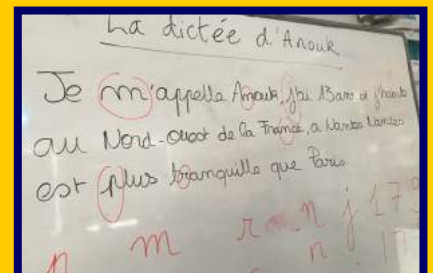 La dictée d'Anouk
Je m'appelle Anouk, j'ai 13 ans et j'habite
au Nord-Ouest de la France, a Nantes Nantes
est plus tranquille que Paris
n m r n j 173
n